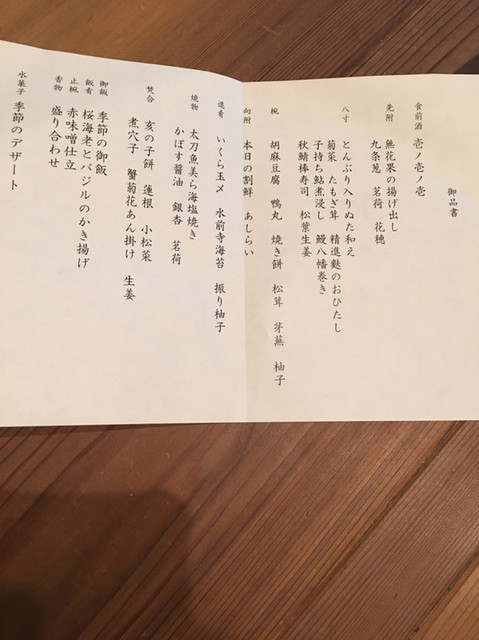 御品書
食前酒 壱ノ壱ノ壱
先附 無花果の揚げ出し
九条葱 茗荷 花穂
八寸 とんぶり入りぬた和え
菊菜 たもぎ茸 精進麩のおひたし
子持ち鮎煮浸し 鰻八幡巻き
秋鯖棒寿司 松葉生姜
椀 胡麻豆腐 鴨丸 焼き餅 松茸 芽蕪 柚子
向附 本日の割鮮 あしらい
進肴 いくら玉〆 水前寺海苔 振り柚子
焼物 太刀魚美ら海塩焼き
かぼす醤油 銀杏 茗荷
焚合 亥の子餅 蓮根 小松菜
煮穴子 蟹菊花あん掛け 生姜
御飯 季節の御飯
飯肴 桜海老とバジルのかき揚げ
止椀 赤味噌仕立
香物 盛り合わせ
水菓子 季節のデザート